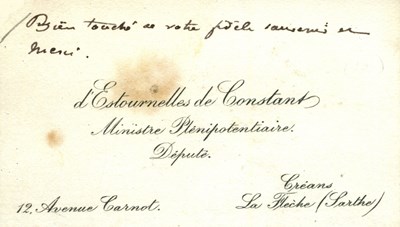 Bien touché de votre fidèle souvenir et
merci.
d'Estournelles de Constant
Ministre Plénipotentiaire.
Député.
12, Avenue Carnot.
Créans
La Flèche (Sarthe)